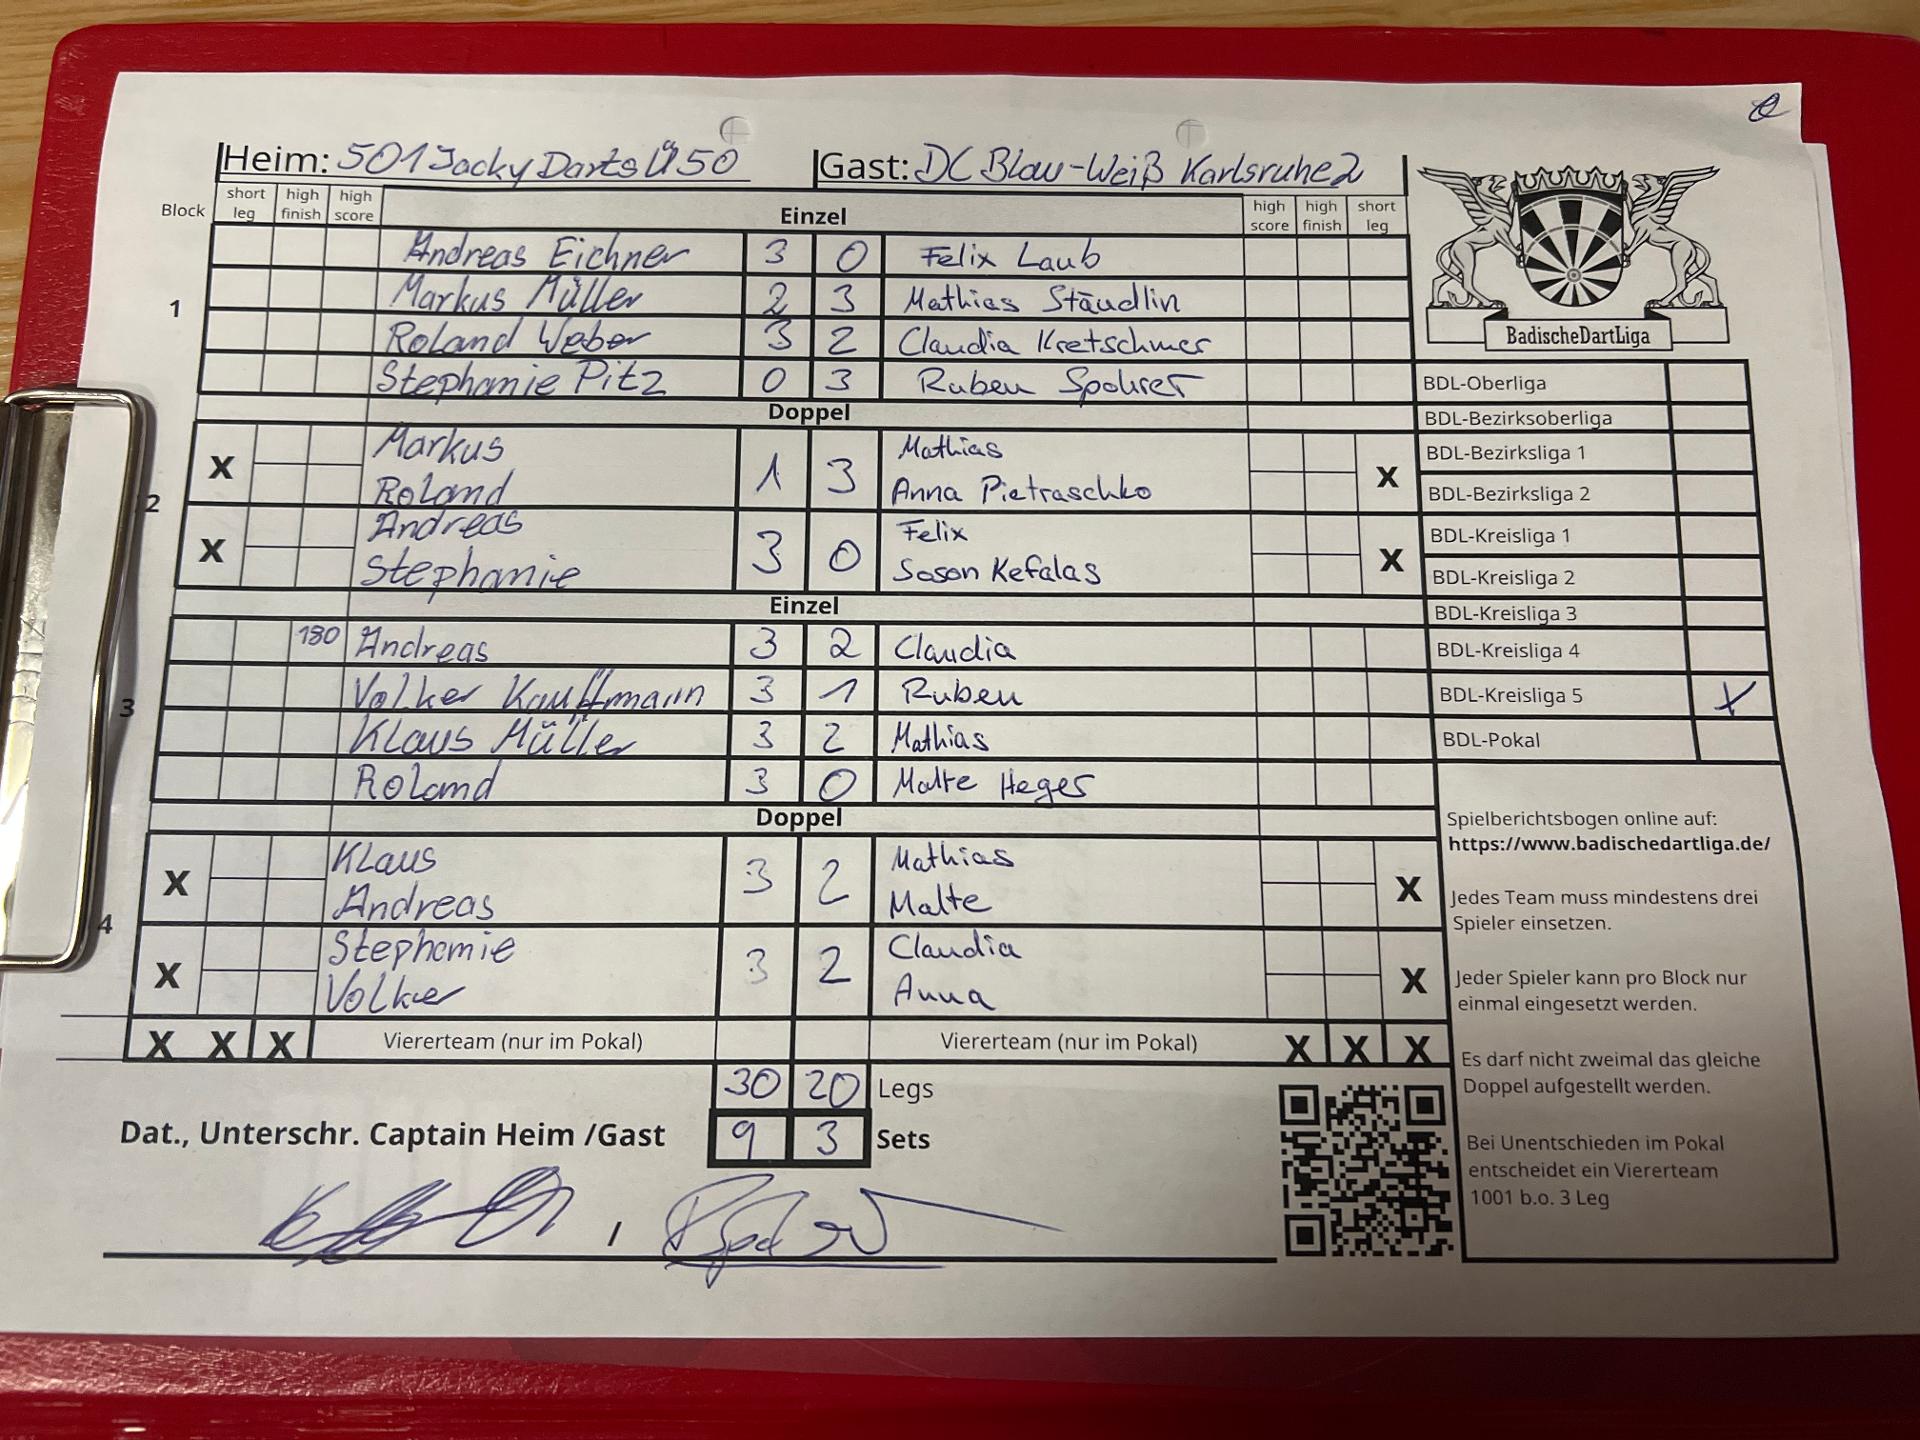 Heim: 501 Jacky Darts Ü50 Gast: DC Blau-Weiß Karlsruhe 2
Block short leg high finish high score Einzel high score high finish short leg
1
Andreas Eichner 3 0 Felix Laub
Markus Müller 2 3 Mathias Stäudlin
Roland Weber 3 2 Claudia Kretschmer
Stephanie Pitz 0 3 Ruben Spohrer
Doppel
2
X Markus 1 3 Mathias X
Roland Anna Pietraschko
X Andreas 3 0 Felix X
Stephanie Soson Kefalas
Einzel
3
180 Andreas 3 2 Claudia
Volker Kauffmann 3 1 Ruben
Klaus Müller 3 2 Mathias
Roland 3 0 Malte Heger
Doppel
4
X Klaus 3 2 Mathias X
Andreas Malte
X Stephanie 3 2 Claudia X
Volker Anna
X X X Viererteam (nur im Pokal) Viererteam (nur im Pokal) X X X
30 20 Legs
Dat., Unterschr. Captain Heim /Gast 9 3 Sets
/
BadischeDartLiga
BDL-Oberliga
BDL-Bezirksoberliga
BDL-Bezirksliga 1
BDL-Bezirksliga 2
BDL-Kreisliga 1
BDL-Kreisliga 2
BDL-Kreisliga 3
BDL-Kreisliga 4
BDL-Kreisliga 5 X
BDL-Pokal
Spielberichtsbogen online auf:
https://www.badischedartliga.de/
Jedes Team muss mindestens drei
Spieler einsetzen.
Jeder Spieler kann pro Block nur
einmal eingesetzt werden.
Es darf nicht zweimal das gleiche
Doppel aufgestellt werden.
Bei Unentschieden im Pokal
entscheidet ein Viererteam
1001 b.o. 3 Leg